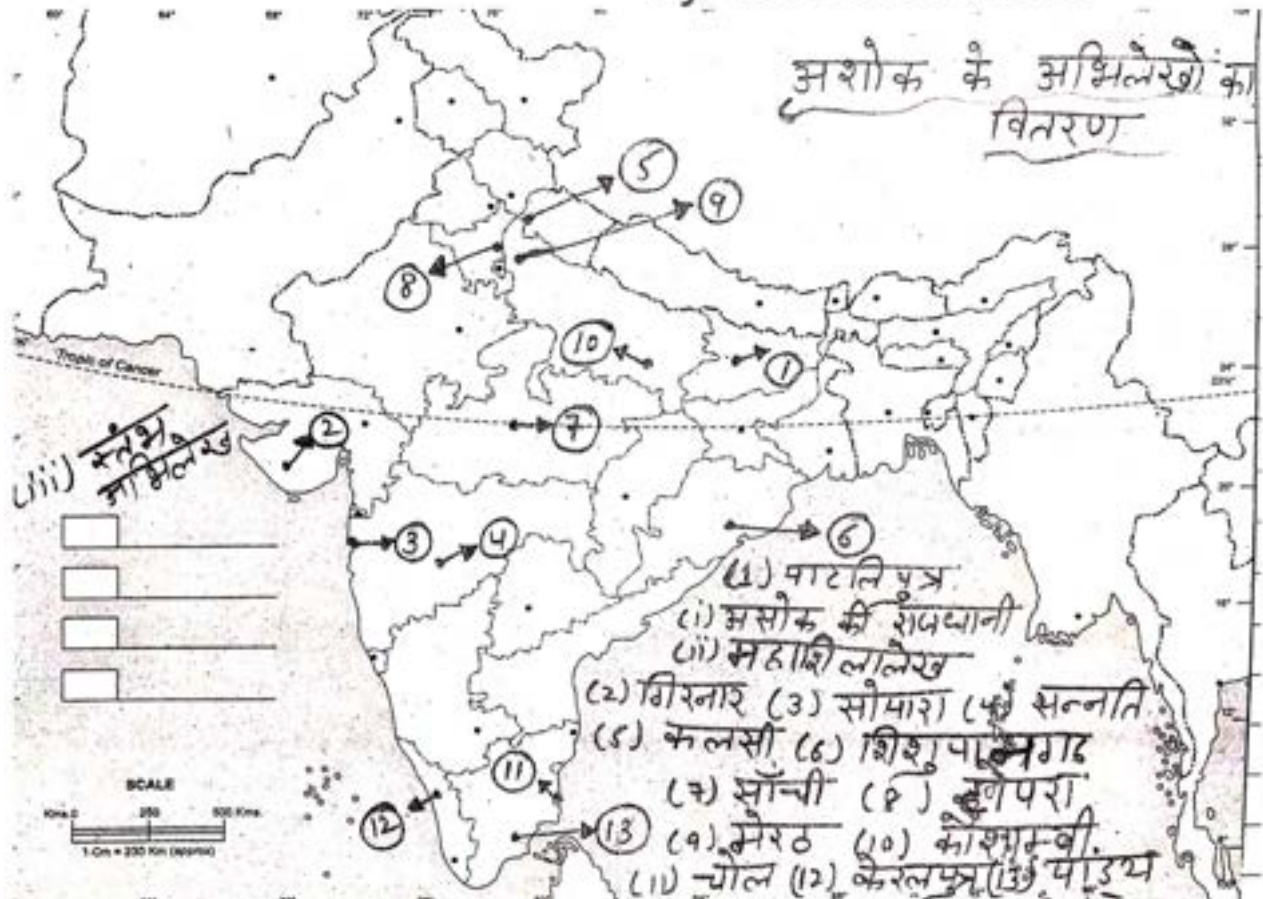 अशोक के अभिलेखों का
वितरण
5
9
8
10
1
Tropic of Cancer
2
7
(iii) स्तंभ
अभिलेख
3
4
6
(1) पाटलिपुत्र
(i) असोक की राजधानी
(ii) महाशिलालेख
(2) गिरनार (3) सोपारा (4) सन्नति
(5) कलसी (6) शिशुपालगढ
(7) साँची (8)
(9) मेरठ (10) कौशाम्बी
(11) चोल (12) केरलपुत्र (13) पांड्य
11
12
13
SCALE
Kms 0 250 500 Kms
1 Cm = 230 Km (approx)